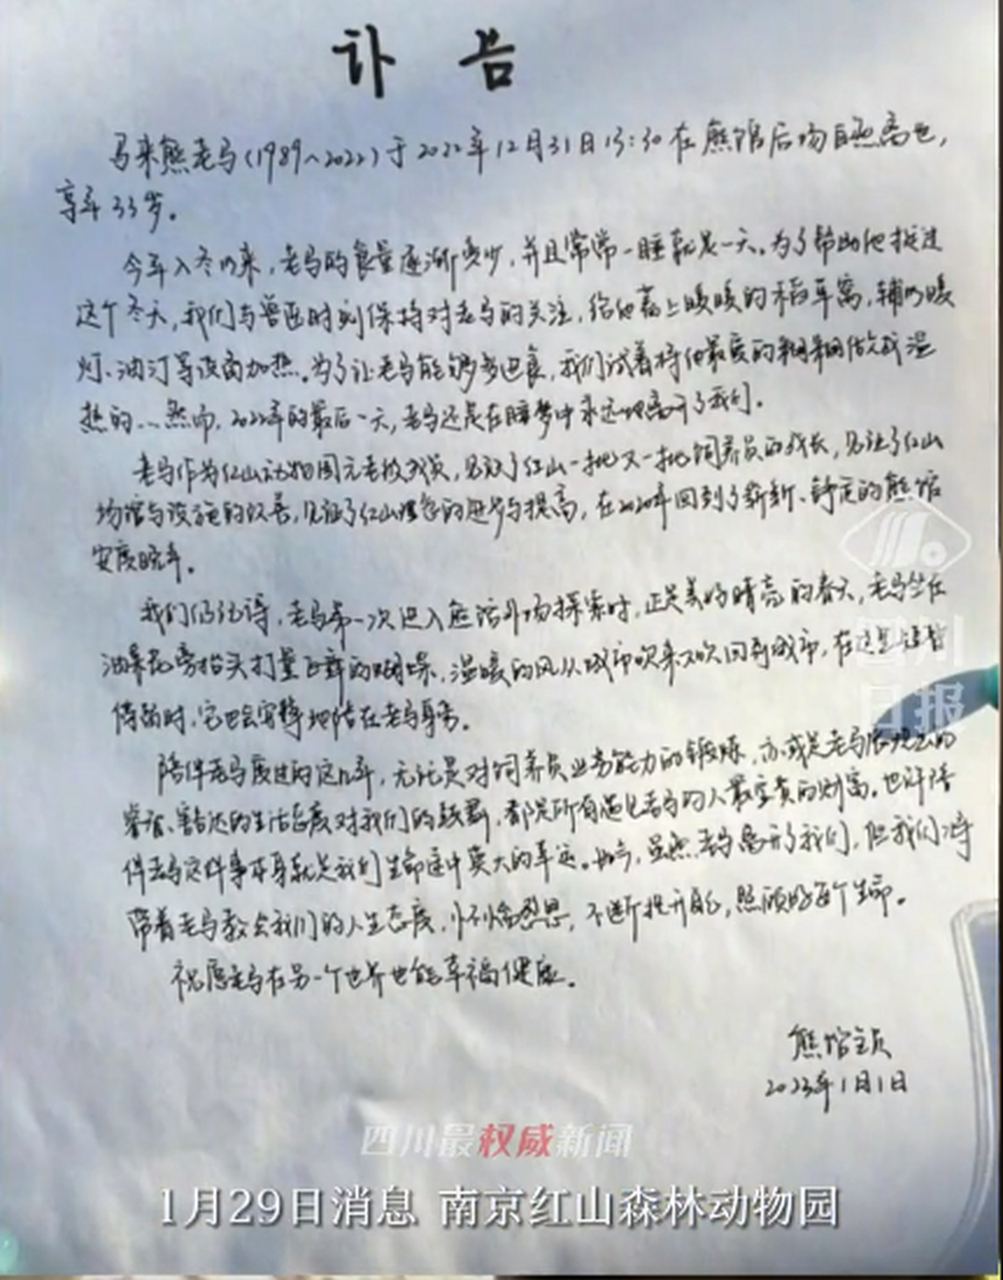 讣告
马来熊老马(1989~2022)于2022年12月31日13:30在熊馆后场自然离世,
享年33岁。
今年入冬以来,老马的食量逐渐变少,并且常常一睡就是一天。为了帮助他挺过
这个冬天,我们与兽医时刻保持对老马的关注,给他蓄上暖暖的稻草窝,辅以暖
灯、油汀等设备加热。为了让老马能够多进食,我们试着将他最爱的粥粥做成温
热的...然而,2022年的最后一天,老马还是在睡梦中永远地离开了我们。
老马作为红山动物园元老级成员,见证了红山一批又一批饲养员的成长,见证了红山
场馆与设施的改善,见证了红山理念的进步与提高,在2020年回到了崭新、舒适的熊馆
安度晚年。
我们仍记得,老马第一次进入熊馆外场探索时,正是美好晴亮的春天,老马坐在
油菜花旁抬头打量飞舞的蝴蝶,温暖的风从城市吹来又吹回到城市,在这里短暂
停留时,它也会安静地陪在老马身旁。
陪伴老马度过的这几年,无论是对饲养员业务能力的锻炼,亦或是老马展现出的
睿智、豁达的生活态度对我们的鼓舞,都是所有遇见老马的人最宝贵的财富。也许陪
伴老马这件事本身就是我们生命途中莫大的幸运。如今,虽然老马离开了我们,但我们将
带着老马教会我们的人生态度,心怀感恩,不断提升自己,照顾好每个生命。
祝愿老马在另一个世界也能幸福健康。
熊馆全员
2023年1月1日
四川日报
四川最权威新闻
1月29日消息 南京红山森林动物园